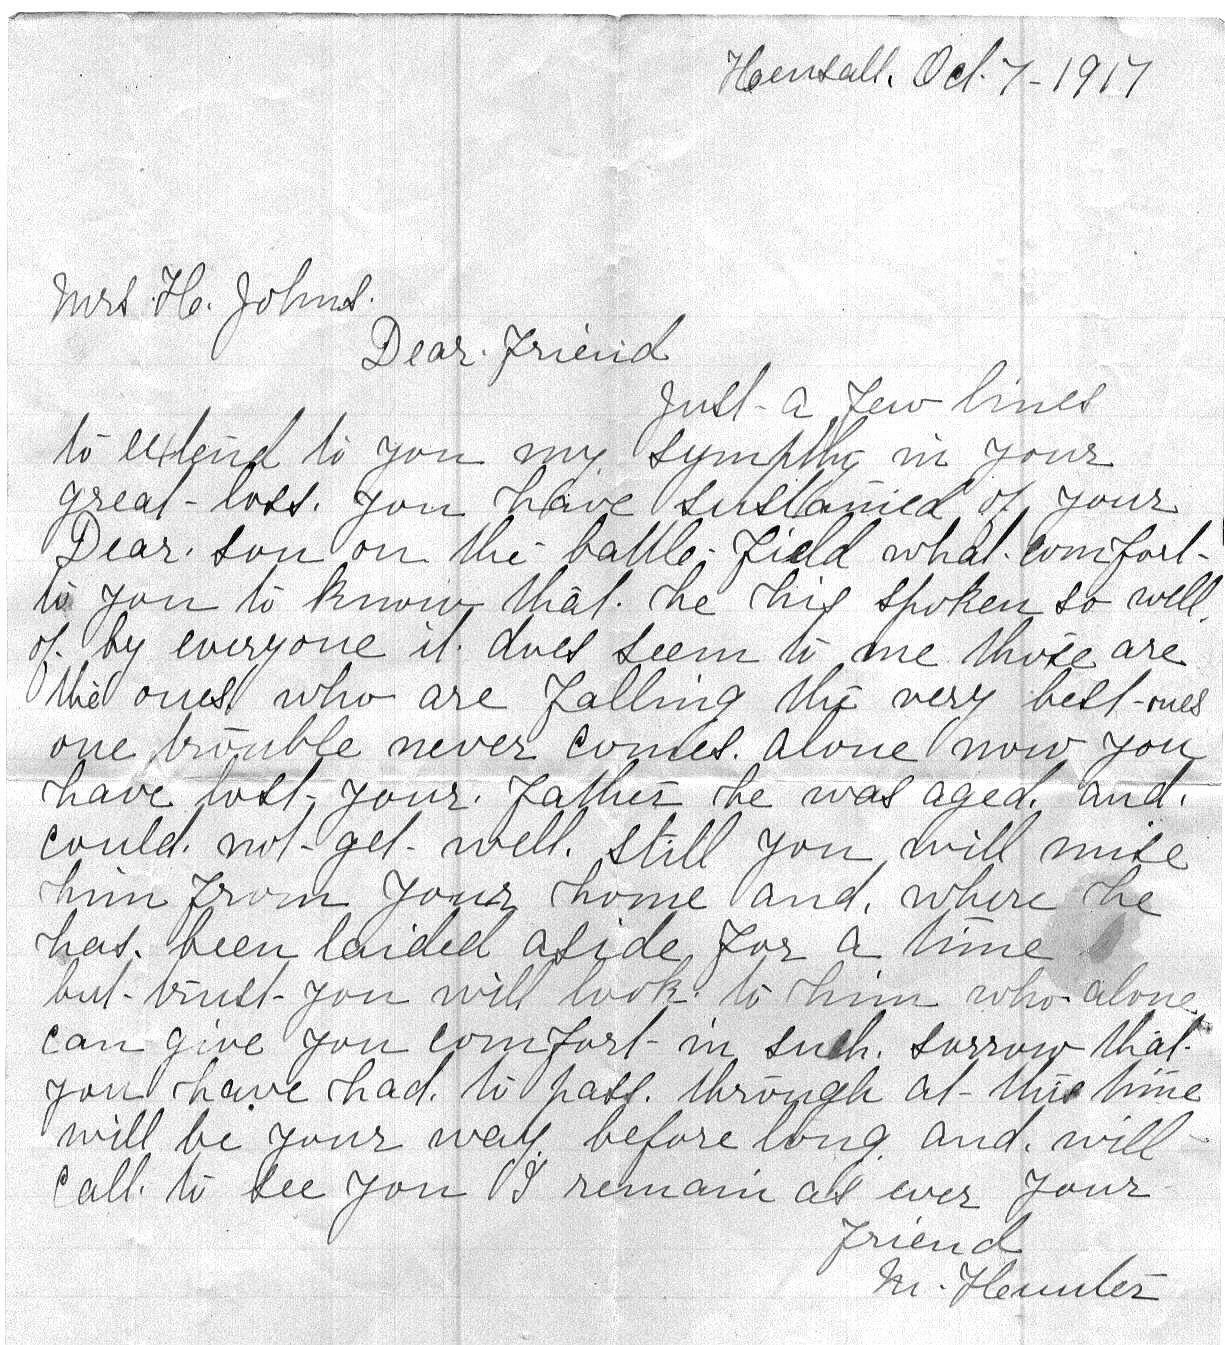 Hensall, Oct. 7-1917
Mrs. H. Johns.
Dear. Friend
Just a few lines
to extend to you my sympthy in your
great loss. you have sustained of your
Dear. son on the battle field what comfort
to you to know that. he his spoken so well.
of. by everyone it. does seem to me those are
the ones who are falling the very best ones
one trouble never comes. alone now you
have lost your. Father he was aged. and.
could. not get well. still you will mise
him from your home and. where he
has. been laided aside for a time
but trust you will look. to him who alone
can give you comfort in such. sorrow that
you have had. to pass. through at this time
will be your way before long and. will
call. to see you I remain as ever your
Friend
M. Hunter